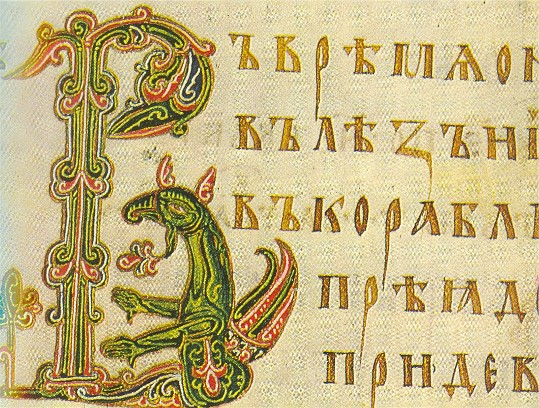 ВЪВРѢМѦОН
ВЪЛѢЗЪИЇ
ВЪКОРАБЛЬ
ПРѢꙖДЕ
ПРИДЕВ